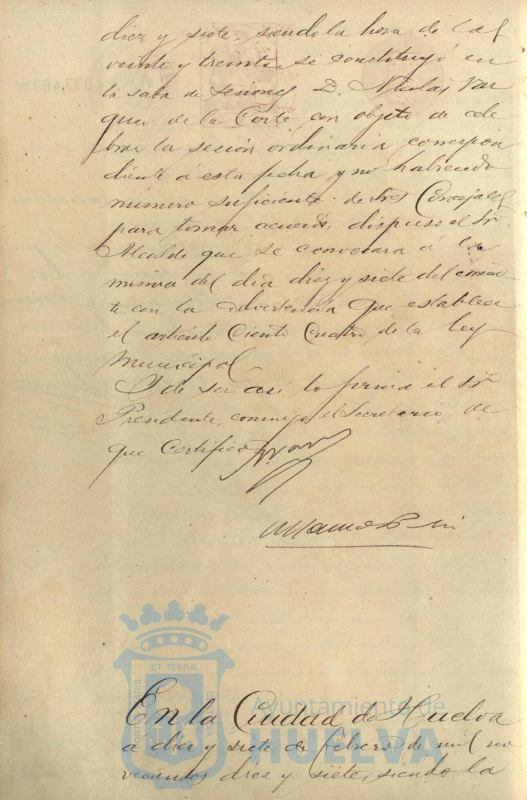 diez y siete, siendo la hora de las
veinte y treinta, se constituyó en
la sala de sesiones D. Nicolas Vaz
quez de la Corte con objeto de cele
brar la sesion ordinaria correspon
diente á esta fecha y no habiendo
número suficiente de tres Concejales
para tomar acuerdo, dispuso el Sr.
Alcalde que se convocara á la
misma del dia diez y siete del corrien
te, con la advertencia que establece
el artículo Ciento Cuatro de la ley
Municipal.
Y de ser así lo firma el Sr.
Presidente, conmigo el Secretario, de
que Certifico.
ET TERRÆ
Ayuntamiento de
HUELVA
En la Ciudad de Huelva
a diez y siete de febrero de mil no
vecientos diez y siete, siendo la